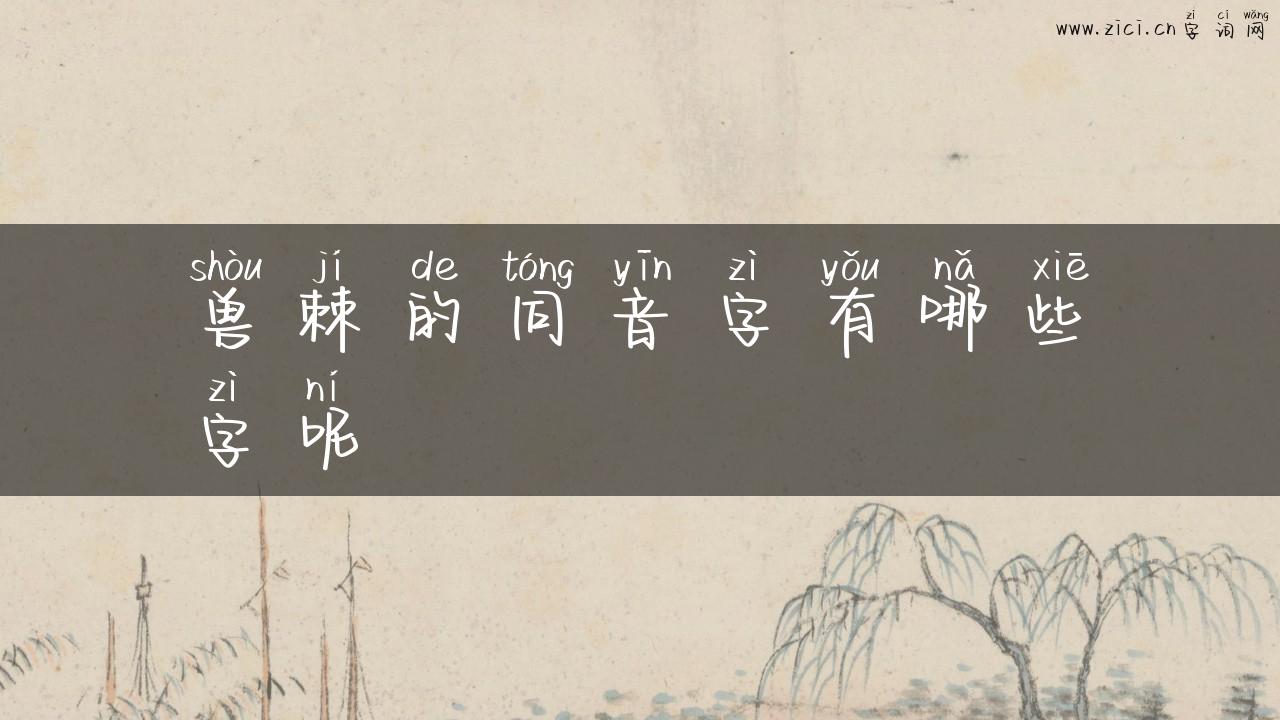 zì cí wǎng
www.zici.cn 字 词 网
shòu jí de tóng yīn zì yǒu nǎ xiē
兽 棘 的 同 音 字 有 哪 些
zì ní
字 呢